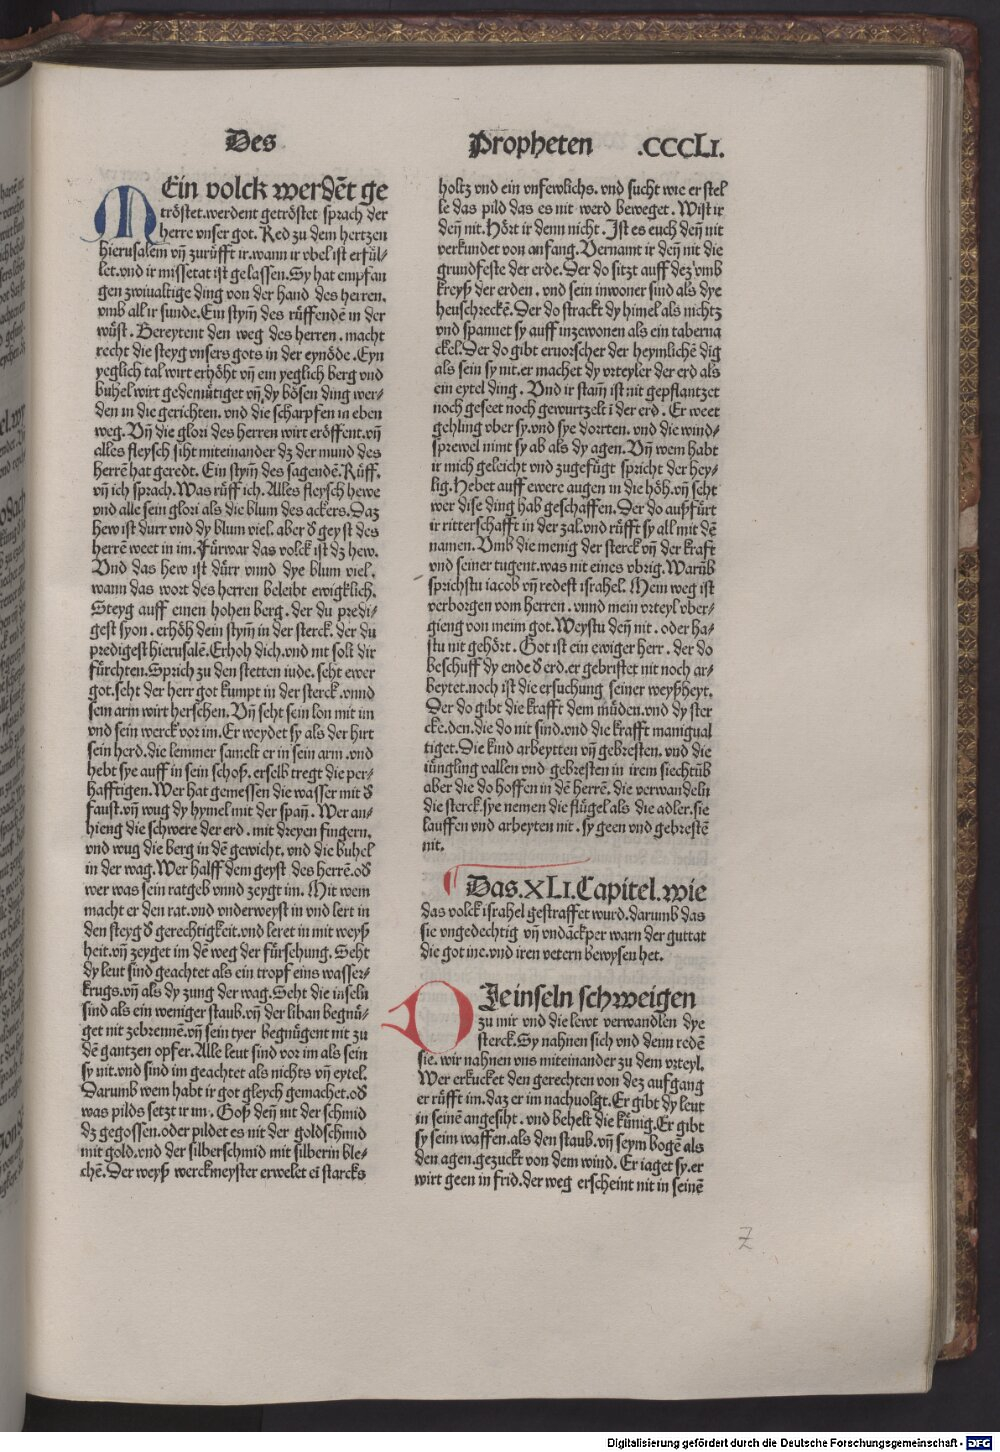 Des Propheten .CCCLI.
MEin volck werdēt ge
tröstet.werdent getröstet sprach der
herre vnser got. Red zu dem hertzen
hierusalem vn̄ zurüfft ir.wann ir vbel ist erfül⸗
let.vnd ir missetat ist gelassen.Sy hat empfan
gen zwiualtige ding von der hand des herren.
vmb all ir sunde.Ein stym̄ des rüffenden in der
wüst. Bereytent den weg des herren. macht
recht die steyg vnsers gots in der eynöde.Eyn
yeglich tal wirt erhöht vn̄ ein yeglich berg vnd
buhel wirt gedemütiget vn̄ dy bösen ding wer⸗
den in die gerichten. vnd die scharpfen in eben
weg. Vn̄ die glori des herren wirt eröffent.vn̄
alles fleysch siht miteinander dz der mund des
herrē hat geredt. Ein stym̄ des sagendē.Rüff.
vn̄ ich sprach.Was rüff ich.Alles fleysch hewe
vnd alle sein glori als die blum des ackers.Daz
hew ist durr vnd dy blum viel. aber d̕ geyst des
herrē weet in im.Fürwar das volck ist dz hew.
Vnd das hew ist dürr vnnd dye blum viel.
wann das wort des herren beleibt ewigklich.
Steyg auff einen hohen berg. der du predi⸗
gest syon. erhöh dein stym̄ in der sterck. der du
predigest hierusalē.Erhoh dich.vnd nit solt dir
fürchten.Sprich zu den stetten iude. seht ewer
got.seht der herr got kumpt in der sterck.vnnd
sein arm wirt herschen. Vn̄ seht sein lon mit im
vnd sein werck vor im. Er weydet sy als der hirt
sein herd.die lemmer samelt er in sein arm .vnd
hebt sye auff in sein schoß. erselb tregt die per⸗
hafftigen.Wer hat gemessen die wasser mit d̕
faust.vn̄ wug dy hymel mit der span̄. Wer an⸗
hieng die schwere der erd. mit dreyen fingern.
vnd wug die berg in dē gewicht. vnd die buhel
in der wag.Wer halff dem geyst des herrē.od̕
wer was sein ratgeb vnnd zeygt im. Mit wem
macht er den rat.vnd vnderweyst in vnd lert in
den steyg d̕ gerechtigkeit.vnd leret in mit weyß
heit.vn̄ zeyget im dē weg der fürschung. Seht
dy leut sind geachtet als ein tropf eins wasser⸗
krugs.vn̄ als dy zung der wag.Seht die inseln
sind als ein weniger staub.vn̄ der liban begnü⸗
get nit zebrennē.vn̄ sein tyer begnügent nit zu
dē gantzen opfer. Alle leut sind vor im als sein
sy nit.vnd sind im geachtet als nichts vn̄ eytel.
Darumb wem habt ir got gleych gemachet.od̕
was pilds setzt ir im. Goß den̄ nit der schmid
dz gegossen.oder pildet es nit der goldschmid
mit gold.vnd der silberschmid mit silberin ble⸗
chē.Der weyß werckmeyster erwelet ei starcks
holtz vnd ein vnfewlichs. vnd sucht wie er stel
le das pild das es nit werd beweget. Wist ir
den̄ nit. Hört ir denn nicht. Ist es euch den̄ nit
verkundet von anfang. Vernamt ir den̄ nit die
grundfeste der erde.Der do sitzt auff dez vmb
kreyß der erden . vnd sein inwoner sind als dye
heuschreckē. Der do strackt dy himel als nichtz
vnd spannet sy auff inzewonen als ein taberna
ckel.Der do gibt eruorscher der heymlichē dig
als sein sy nit.er machet dy vrteyler der erd als
ein eytel ding. Vnd ir stam̄ ist nit gepflantzet
noch geseet noch gewurtzelt ī der erd . Er weet
gehling vber sy.vnd sye dorrten. vnd die wind⸗
sprewel nimt sy ab als dy agen. Vn̄ wem habt
ir mich geleicht vnd zugefügt spricht der hey⸗
lig. Hebet auff ewere augen in die höh.vn̄ seht
wer dise ding hab geschaffen. Der do außfürt
ir ritterschafft in der zal.vnd rüfft sy all mit dē
namen. Vmb die menig der sterck vn̄ der kraft
vnd seiner tugent.was nit eines vbrig.Warūb
sprichstu iacob vn̄ redest israhel. Mein weg ist
verborgen vom herren . vnnd mein vrteyl vber⸗
gieng von meim got.Weystu den̄ nit . oder ha⸗
stu nit gehört. Got ist ein ewiger herr. der do
beschuff dy ende d̕ erd.er gebristet nit noch ar⸗
beytet.noch ist die ersuchung seiner weyßheyt.
Der do gibt die krafft dem müden.vnd dy ster
cke.den.die do nit sind.vnd die krafft manigual
tiget.Die kind arbeytten vn̄ gebresten. vnd die
iüngling vallen vnd gebresten in irem siechtūb
aber die do hoffen in dē herrē. die verwandeln
die sterck.sye nemen die flügel als die adler.sie
lauffen vnd arbeyten nit. sy geen vnd gebrestē
nit.
Das.XLI.Capitel.wie
das volck israhel gestraffet wurd.darumb das
sie vngedechtig vn̄ vndāckper warn der guttat
die got ine.vnd iren vetern bewysen het.
DJe inseln schweigen
zu mir vnd die lewt verwandlen dye
sterck.Sy nahnen sich vnd denn redē
sie. wir nahnen vns miteinander zu dem vrteyl.
Wer erkucket den gerechten von dez aufgang
er rüfft im.daz er im nachuolgt. Er gibt dy leut
in seinē angesiht. vnd behelt die künig.Er gibt
sy seim waffen.als den staub.vn̄ seym bogē als
den agen.gezuckt von dem wind. Er iaget sy.er
wirt geen in frid.der weg erscheint nit in seinē
Z
Digitalisierung gefördert durch die Deutsche Forschungsgemeinschaft - DFG